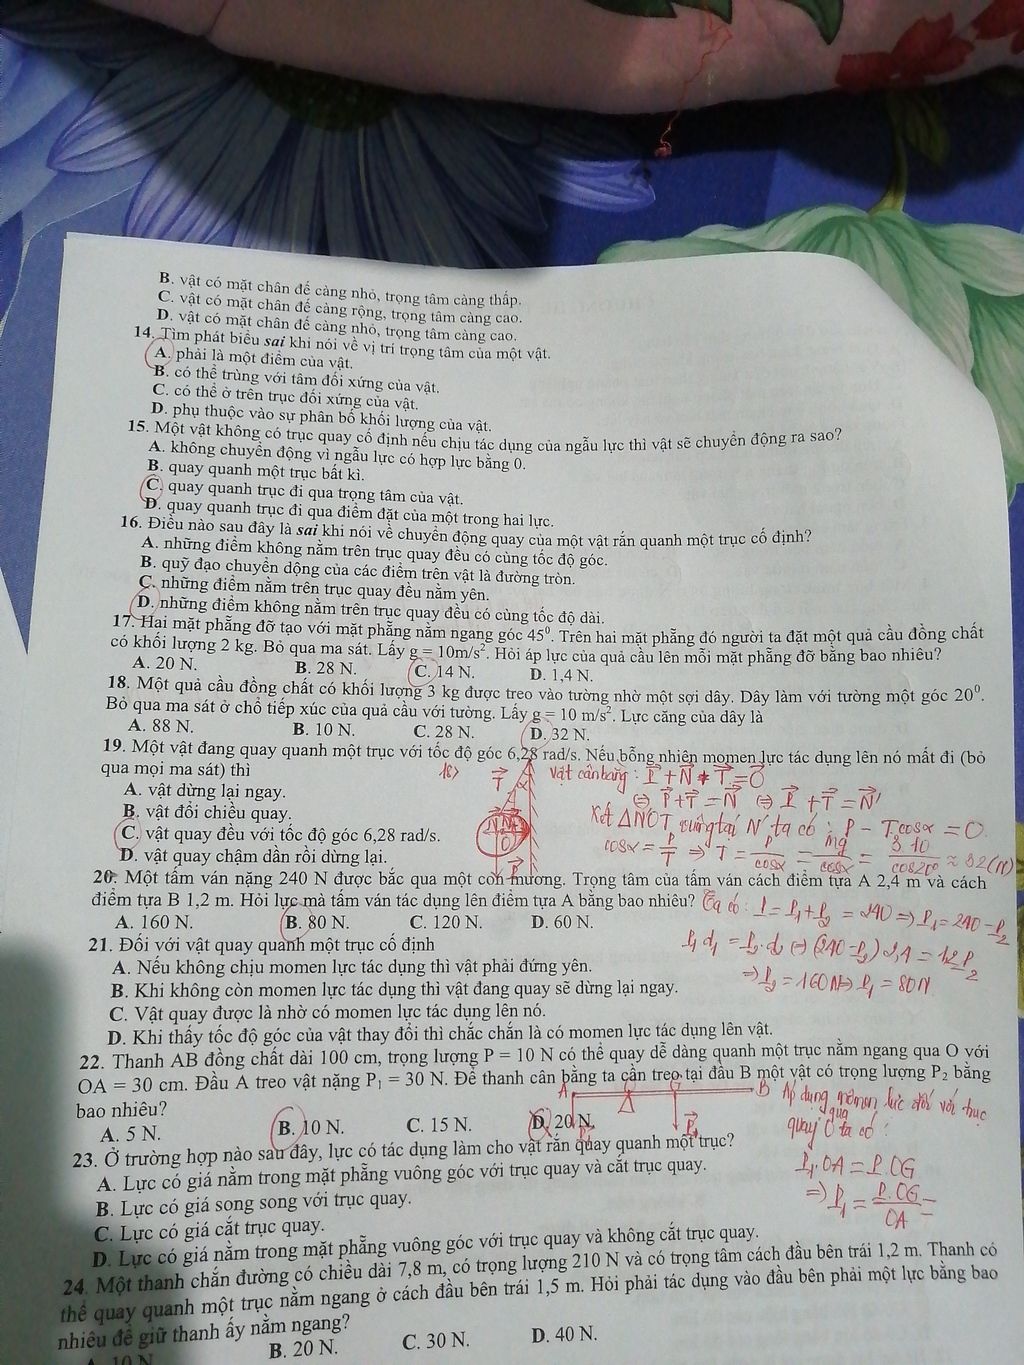 B. vật có mặt chân đế càng nhỏ, trọng tâm càng thấp.
C. vật có mặt chân đế càng rộng, trọng tâm càng cao.
D. vật có mặt chân đế càng nhỏ, trọng tâm càng cao.
14. Tìm phát biểu sai khi nói về vị trí trọng tâm của một vật.
A. phải là một điểm của vật.
B. có thể trùng với tâm đối xứng của vật.
C. có thể ở trên trục đối xứng của vật.
D. phụ thuộc vào sự phân bố khối lượng của vật.
15. Một vật không có trục quay cố định nếu chịu tác dụng của ngẫu lực thì vật sẽ chuyển động ra sao?
A. không chuyển động vì ngẫu lực có hợp lực bằng 0.
B. quay quanh một trục bất kì.
C. quay quanh trục đi qua trọng tâm của vật.
D. quay quanh trục đi qua điểm đặt của một trong hai lực.
16. Điều nào sau đây là sai khi nói về chuyển động quay của một vật rắn quanh một trục cố định?
A. những điểm không nằm trên trục quay đều có cùng tốc độ góc.
B. quỹ đạo chuyển dộng của các điểm trên vật là đường tròn.
C. những điểm nằm trên trục quay đều nằm yên.
D. những điểm không nằm trên trục quay đều có cùng tốc độ dài.
17. Hai mặt phẳng đỡ tạo với mặt phẳng nằm ngang góc 45⁰. Trên hai mặt phẳng đó người ta đặt một quả cầu đồng chất
có khối lượng 2 kg. Bỏ qua ma sát. Lấy g = 10m/s². Hỏi áp lực của quả cầu lên mỗi mặt phẳng đỡ bằng bao nhiêu?
A. 20 N. B. 28 N. C. 14 N. D. 1,4 N.
18. Một quả cầu đồng chất có khối lượng 3 kg được treo vào tường nhờ một sợi dây. Dây làm với tường một góc 20⁰.
Bỏ qua ma sát ở chỗ tiếp xúc của quả cầu với tường. Lấy g = 10 m/s². Lực căng của dây là
A. 88 N. B. 10 N. C. 28 N. D. 32 N.
19. Một vật đang quay quanh một trục với tốc độ góc 6,28 rad/s. Nếu bỗng nhiên momen lực tác dụng lên nó mất đi (bỏ
qua mọi ma sát) thì
18> T⃗ α Vật cân bằng: P⃗ + N⃗ + T⃗ = 0⃗
A. vật dừng lại ngay.
⇔ P⃗ + T⃗ = N⃗ ⇔ P⃗ + T⃗ = N⃗'
B. vật đổi chiều quay.
Xét ΔNOT, vuông tại N', ta có: P - T.cosα = 0
C. vật quay đều với tốc độ góc 6,28 rad/s.
cosα = P/T ⇒ T = P/cosα = mg/cosα = 3.10/cos20° ≈ 32(N)
D. vật quay chậm dần rồi dừng lại.
P⃗
20. Một tấm ván nặng 240 N được bắc qua một con mương. Trọng tâm của tấm ván cách điểm tựa A 2,4 m và cách
điểm tựa B 1,2 m. Hỏi lực mà tấm ván tác dụng lên điểm tựa A bằng bao nhiêu? Ta có: P = P₁ + P₂ = 240 ⇒ P₁ = 240 - P₂
A. 160 N. B. 80 N. C. 120 N. D. 60 N.
P₁d₁ = P₂.d₂ ⇔ (240 - P₂) 2,4 = 1,2P₂
21. Đối với vật quay quanh một trục cố định
⇒ P₂ = 160N ⇒ P₁ = 80N
A. Nếu không chịu momen lực tác dụng thì vật phải đứng yên.
B. Khi không còn momen lực tác dụng thì vật đang quay sẽ dừng lại ngay.
C. Vật quay được là nhờ có momen lực tác dụng lên nó.
D. Khi thấy tốc độ góc của vật thay đổi thì chắc chắn là có momen lực tác dụng lên vật.
22. Thanh AB đồng chất dài 100 cm, trọng lượng P = 10 N có thể quay dễ dàng quanh một trục nằm ngang qua O với
OA = 30 cm. Đầu A treo vật nặng P₁ = 30 N. Để thanh cân bằng ta cần treo tại đầu B một vật có trọng lượng P₂ bằng
bao nhiêu?
A O G B Áp dụng mômen lực đối với trục
quay qua O ta có:
A. 5 N. B. 10 N. C. 15 N. D. 20 N.
P₁.OA = P.OG
23. Ở trường hợp nào sau đây, lực có tác dụng làm cho vật rắn quay quanh một trục?
⇒ P₁ = P.OG/OA =
A. Lực có giá nằm trong mặt phẳng vuông góc với trục quay và cắt trục quay.
B. Lực có giá song song với trục quay.
C. Lực có giá cắt trục quay.
D. Lực có giá nằm trong mặt phẳng vuông góc với trục quay và không cắt trục quay.
24. Một thanh chắn đường có chiều dài 7,8 m, có trọng lượng 210 N và có trọng tâm cách đầu bên trái 1,2 m. Thanh có
thể quay quanh một trục nằm ngang ở cách đầu bên trái 1,5 m. Hỏi phải tác dụng vào đầu bên phải một lực bằng bao
nhiêu để giữ thanh ấy nằm ngang?
A. 10 N B. 20 N. C. 30 N. D. 40 N.